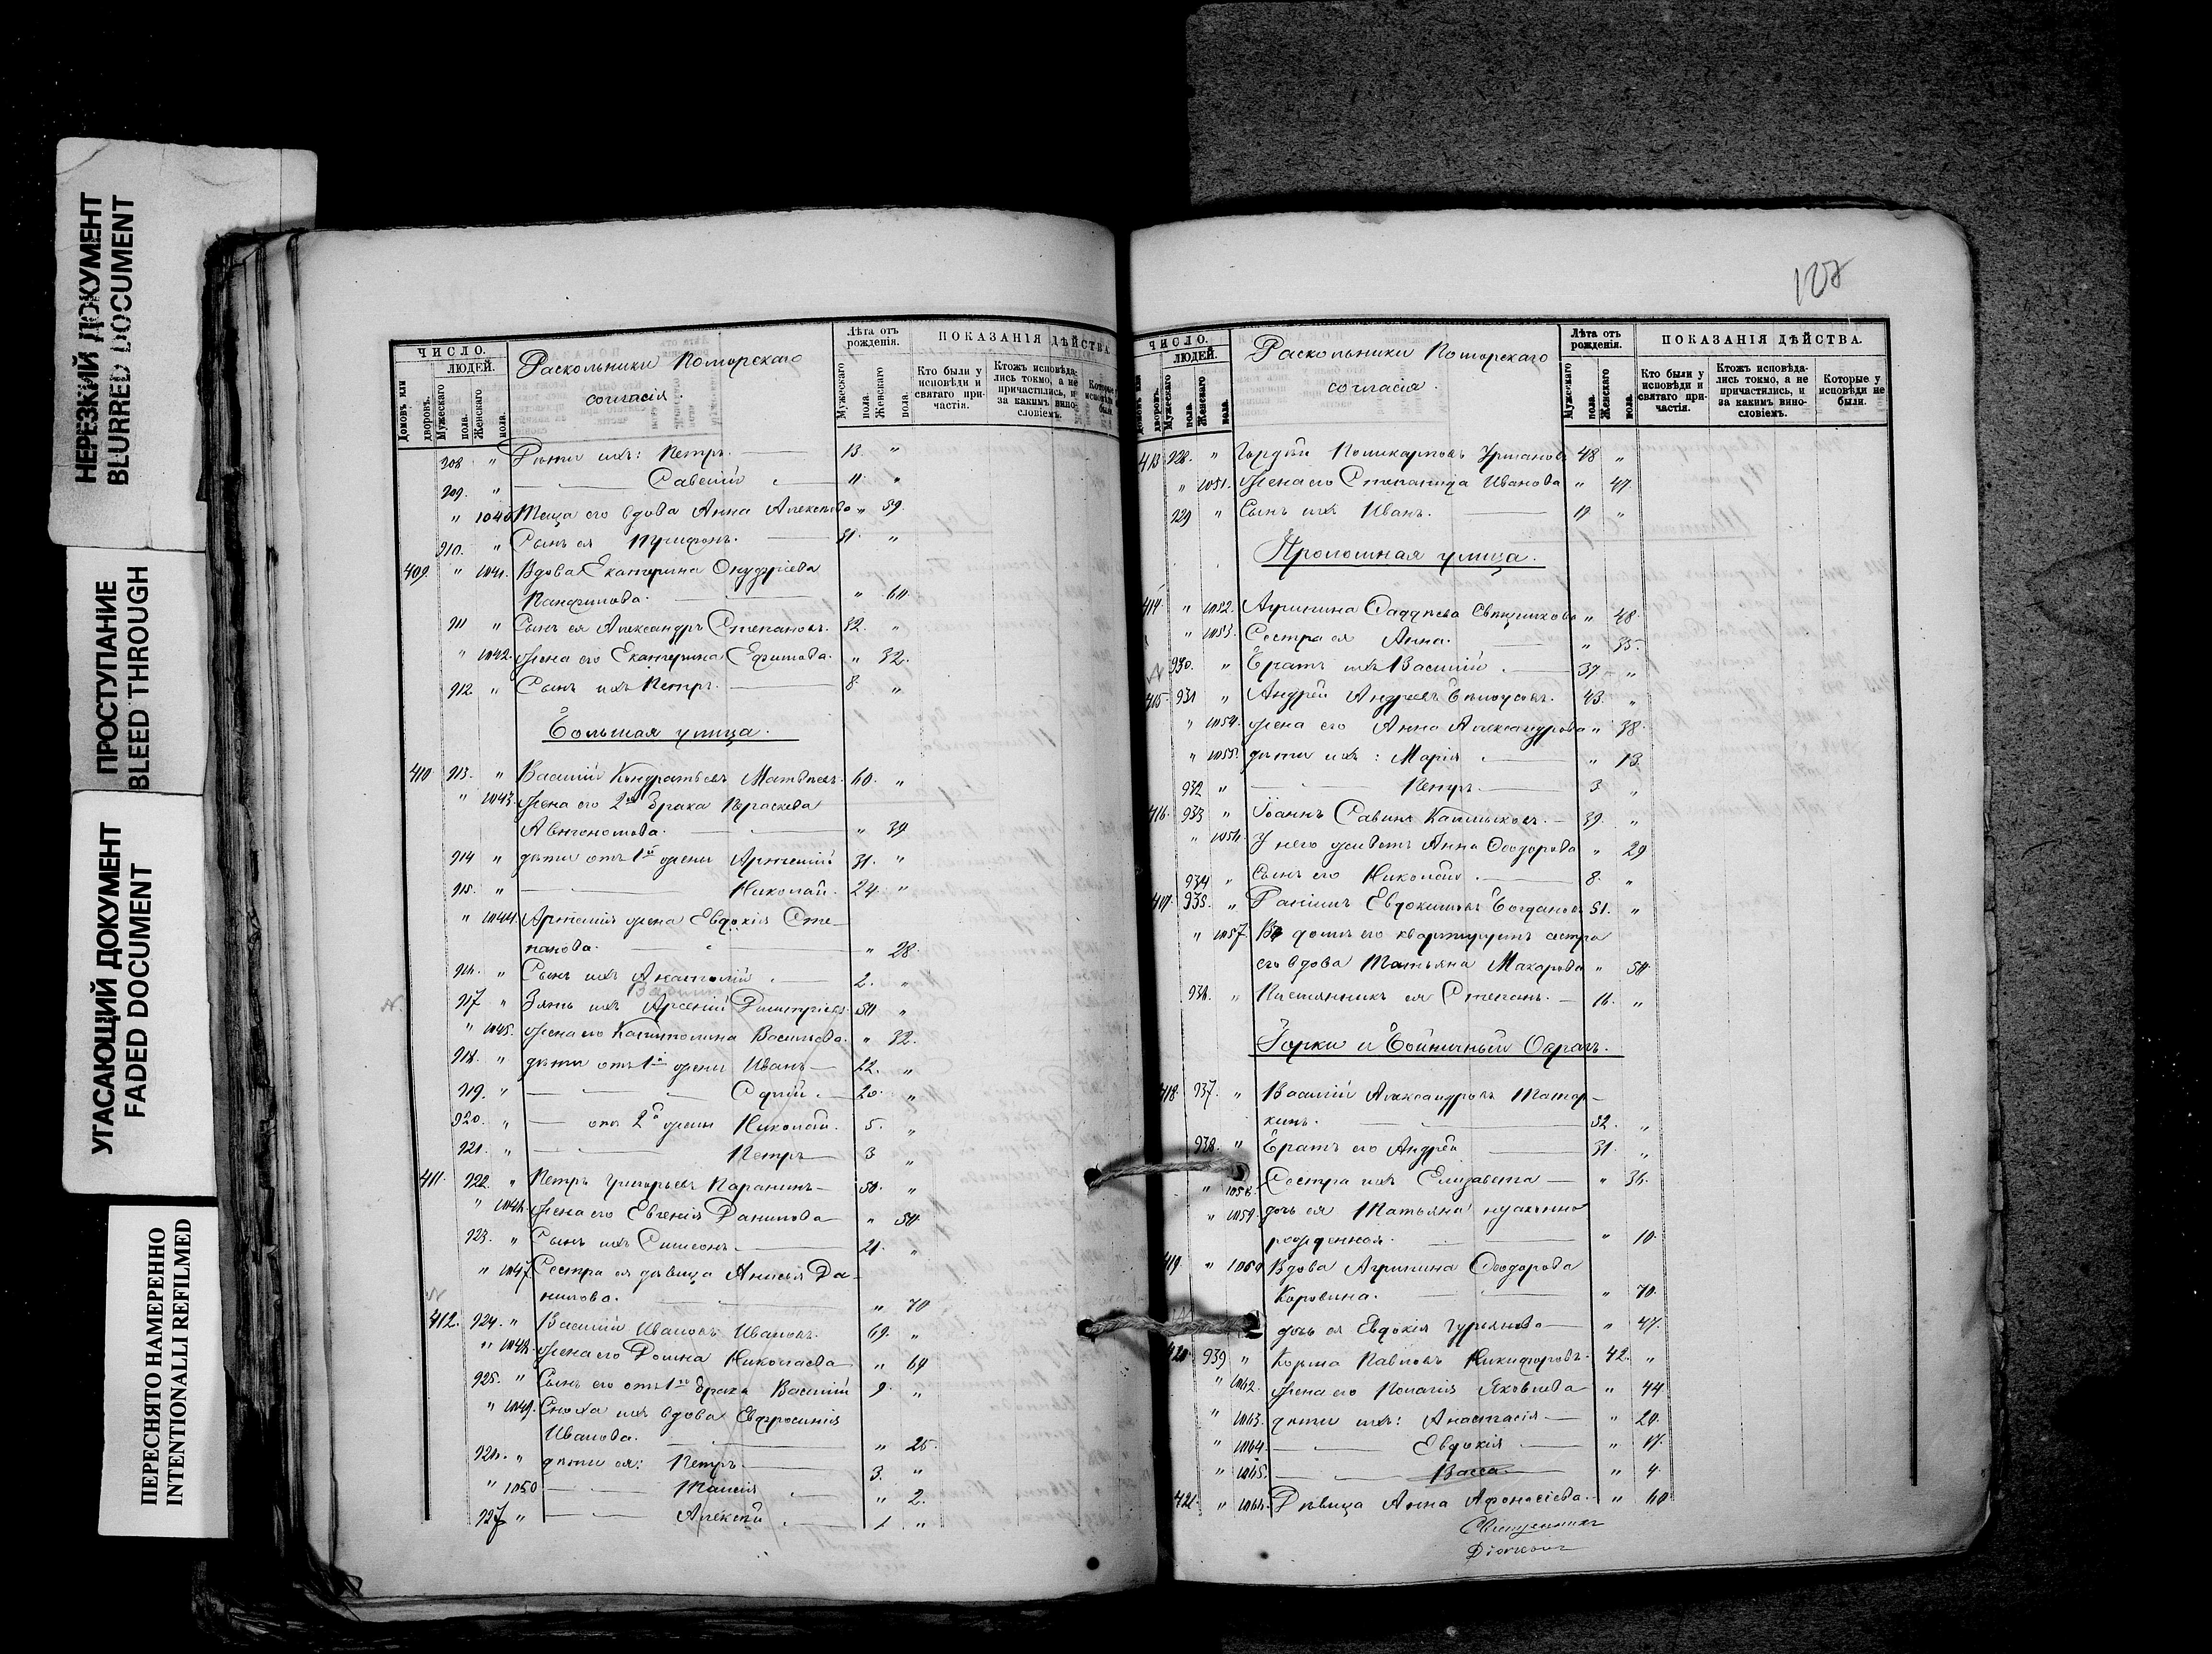 НЕРЕЗКИЙ ДОКУМЕНТ
BLURRED DOCUMENT
ПРОСТУПАНИЕ
BLEED THROUGH
УГАСАЮЩИЙ ДОКУМЕНТ
FADED DOCUMENT
ПЕРЕСНЯТО НАМЕРЕННО
INTENTIONALLI REFILMED
ЧИСЛО.
ЛЮДЕЙ.
Домовъ или дворовъ.
Мужескаго пола.
Женскаго пола.
Раскольники Поморскаго
согласія
Лѣта отъ рожденія.
Мужескаго пола.
Женскаго пола.
ПОКАЗАНІЯ ДѢЙСТВА
Кто были у исповѣди и святаго причастія.
Ктожъ исповѣдались токмо, а не причастились, и за какимъ винословіемъ.
908 " Дѣти ихъ: Петръ. 13. "
909. " Савелій 11. "
" 1040 Теща его вдова Анна Алексѣева " 59.
910. " Сынъ ея 31. "
409. " 1041. Вдова Екатерина Онуфріева
Панфилова. " 60
911 " Сынъ ея Александръ Степановъ. 32. "
" 1042. Жена его Екатерина Ефимова. " 32.
912 " Сынъ ихъ Петръ. 8. "
Большая улица.
410 913. " Василій Кондратьевъ Матвѣевъ. 60. "
" 1043. Жена его 2го брака Параскева
Автономова. " 39
914 " дѣти отъ 1й жены Артемій 31. "
915. " Николай. 24. "
" 1044. Артемія жена Евдокія Сте-
панова. " 28.
916. " Сынъ ихъ Анатолій 2. "
917 " Зять ихъ Арсеній Димитріевъ 50 "
" 1045. Жена его Капитолина Васильева. " 32.
918. " дѣти отъ 1й жены Иванъ 22. "
919. " 20. "
920. " отъ 2й жены Николай. 5. "
921. " Петръ 3 "
411. 922. " Петръ Григорьевъ Паранинъ 50. "
" 1046. Жена его Евгенія Данилова " 50.
923. " Сынъ ихъ Симеонъ. 21. "
" 1047. Сестра ея дѣвица Анисья Да-
нилова. " 70
412. 924. " Василій Ивановъ Ивановъ. 69. "
" 1048. Жена его Домна Николаева " 69
925. " Сынъ его отъ 1го брака Василій 9. "
" 1049. Сноха ихъ вдова Евфросинія
Иванова. " 25.
926. " дѣти ея: Петръ 3. "
" 1050 Таисія " 2.
927 " Алексѣй 1 "
107
ЧИСЛО.
ЛЮДЕЙ.
Домовъ или дворовъ.
Мужескаго пола.
Женскаго пола.
Раскольники Поморскаго
согласія.
Лѣта отъ рожденія.
Мужескаго пола.
Женскаго пола.
ПОКАЗАНІЯ ДѢЙСТВА.
Кто были у исповѣди и святаго причастія.
Ктожъ исповѣдались токмо, а не причастились, и за какимъ винословіемъ.
Которые у исповѣди не были.
413 928. " Гордѣй Поликарповъ 48 "
" 1051. Жена его Степанида Иванова " 47.
929 " Сынъ ихъ Иванъ. 19 "
Проломная улица.
414 " 1052. Агрипина Фаддѣева " 48.
" 1053. Сестра ея Анна. " 35.
930. " Братъ ихъ Василій 37 "
415 931 " Андрей Андреевъ Бѣлоусовъ. 43. "
" 1054. Жена его Анна Александрова " 38.
" 1055. дѣти ихъ: Марія " 13
932 " Петръ 3 "
416. 933 " Іоаннъ Савинъ Калмыковъ. 39. "
" 1056. У него живетъ Анна Ѳеодорова " 29
934 " Сынъ его Николай 8. "
417 935. " Евдокимовъ Богдановъ 51. "
" 1057. Въ домѣ его квартируетъ сестра
его вдова Татьяна Макарова " 50.
936. " Племянникъ ея Степанъ. 16. "
Горки и Бойничный Оврагъ.
418. 937. " Василій Александровъ Татар-
кинъ. 52. "
938. " Братъ его Андрей 31. "
" 1058. Сестра ихъ Елизавета " 36.
" 1059. дочь ея Татьяна незаконно
рожденная. " 10.
419 " 1060 Вдова Агрипина Ѳеодорова
Коровина. " 70.
дочь ея Евдокія Гурьянова " 47.
420 939 " Козма Павловъ Никифоровъ. 42. "
" 1062. Жена его Пелагія Яковлева " 44
" 1063. дѣти ихъ: Анастасія " 20.
" 1064. Евдокія " 17.
" 1065. Васса " 4.
421. " 1066. Дѣвица Анна Афонасіева. " 60